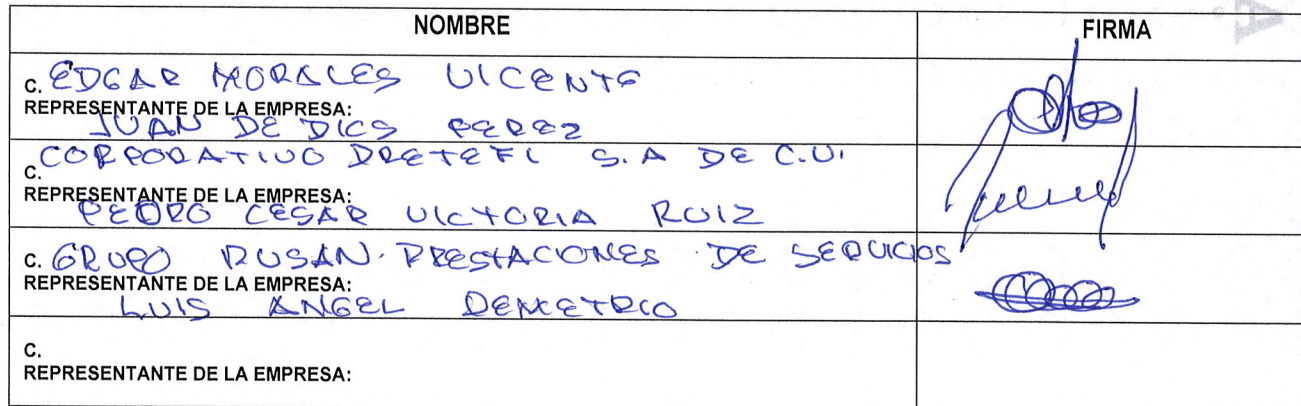 NOMBRE FIRMA
C. EDGAR MORALES VICENTE
REPRESENTANTE DE LA EMPRESA:
JUAN DE DIOS PEREZ
C. CORPORATIVO DRETEFI S.A DE C.V.
REPRESENTANTE DE LA EMPRESA:
PEDRO CESAR VICTORIA RUIZ
C. GRUPO RUSAN PRESTACIONES DE SERVICIOS
REPRESENTANTE DE LA EMPRESA:
LUIS ANGEL DEMETRIO
C.
REPRESENTANTE DE LA EMPRESA: